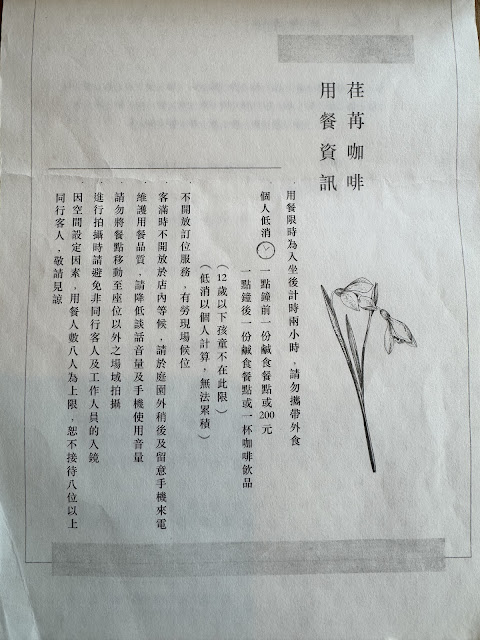 荏苒咖啡
用餐資訊
．用餐限時為入坐後計時兩小時，請勿攜帶外食
．個人低消 一點鐘前一份鹹食餐點或200元
一點鐘後一份鹹食餐點或一杯咖啡飲品
（12歲以下孩童不在此限）
（低消以個人計算，無法累積）
．不開放訂位服務，有勞現場候位
．客滿時不開放於店內等候，請於庭園外稍後及留意手機來電
．維護用餐品質，請降低談話音量及手機使用音量
．請勿將餐點移動至座位以外之場域拍攝
．進行拍攝時請避免非同行客人及工作人員的入鏡
．因空間設定因素，用餐人數八人為上限，恕不接待八位以上
同行客人，敬請見諒